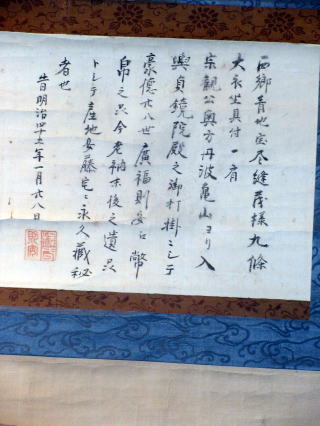 両郷青地宝尽縫茂様九條
大衣坐具付一肩
宗観公奥方丹波亀山ヨリ入
輿貞鏡院殿之御打掛ニシテ
豪徳廿八世廣福則安ニ幣
帛之品今老衲末後之遺品
トシテ産地安藤宅ニ永久蔵秘
者也
昔明治四十五年一月廿八日